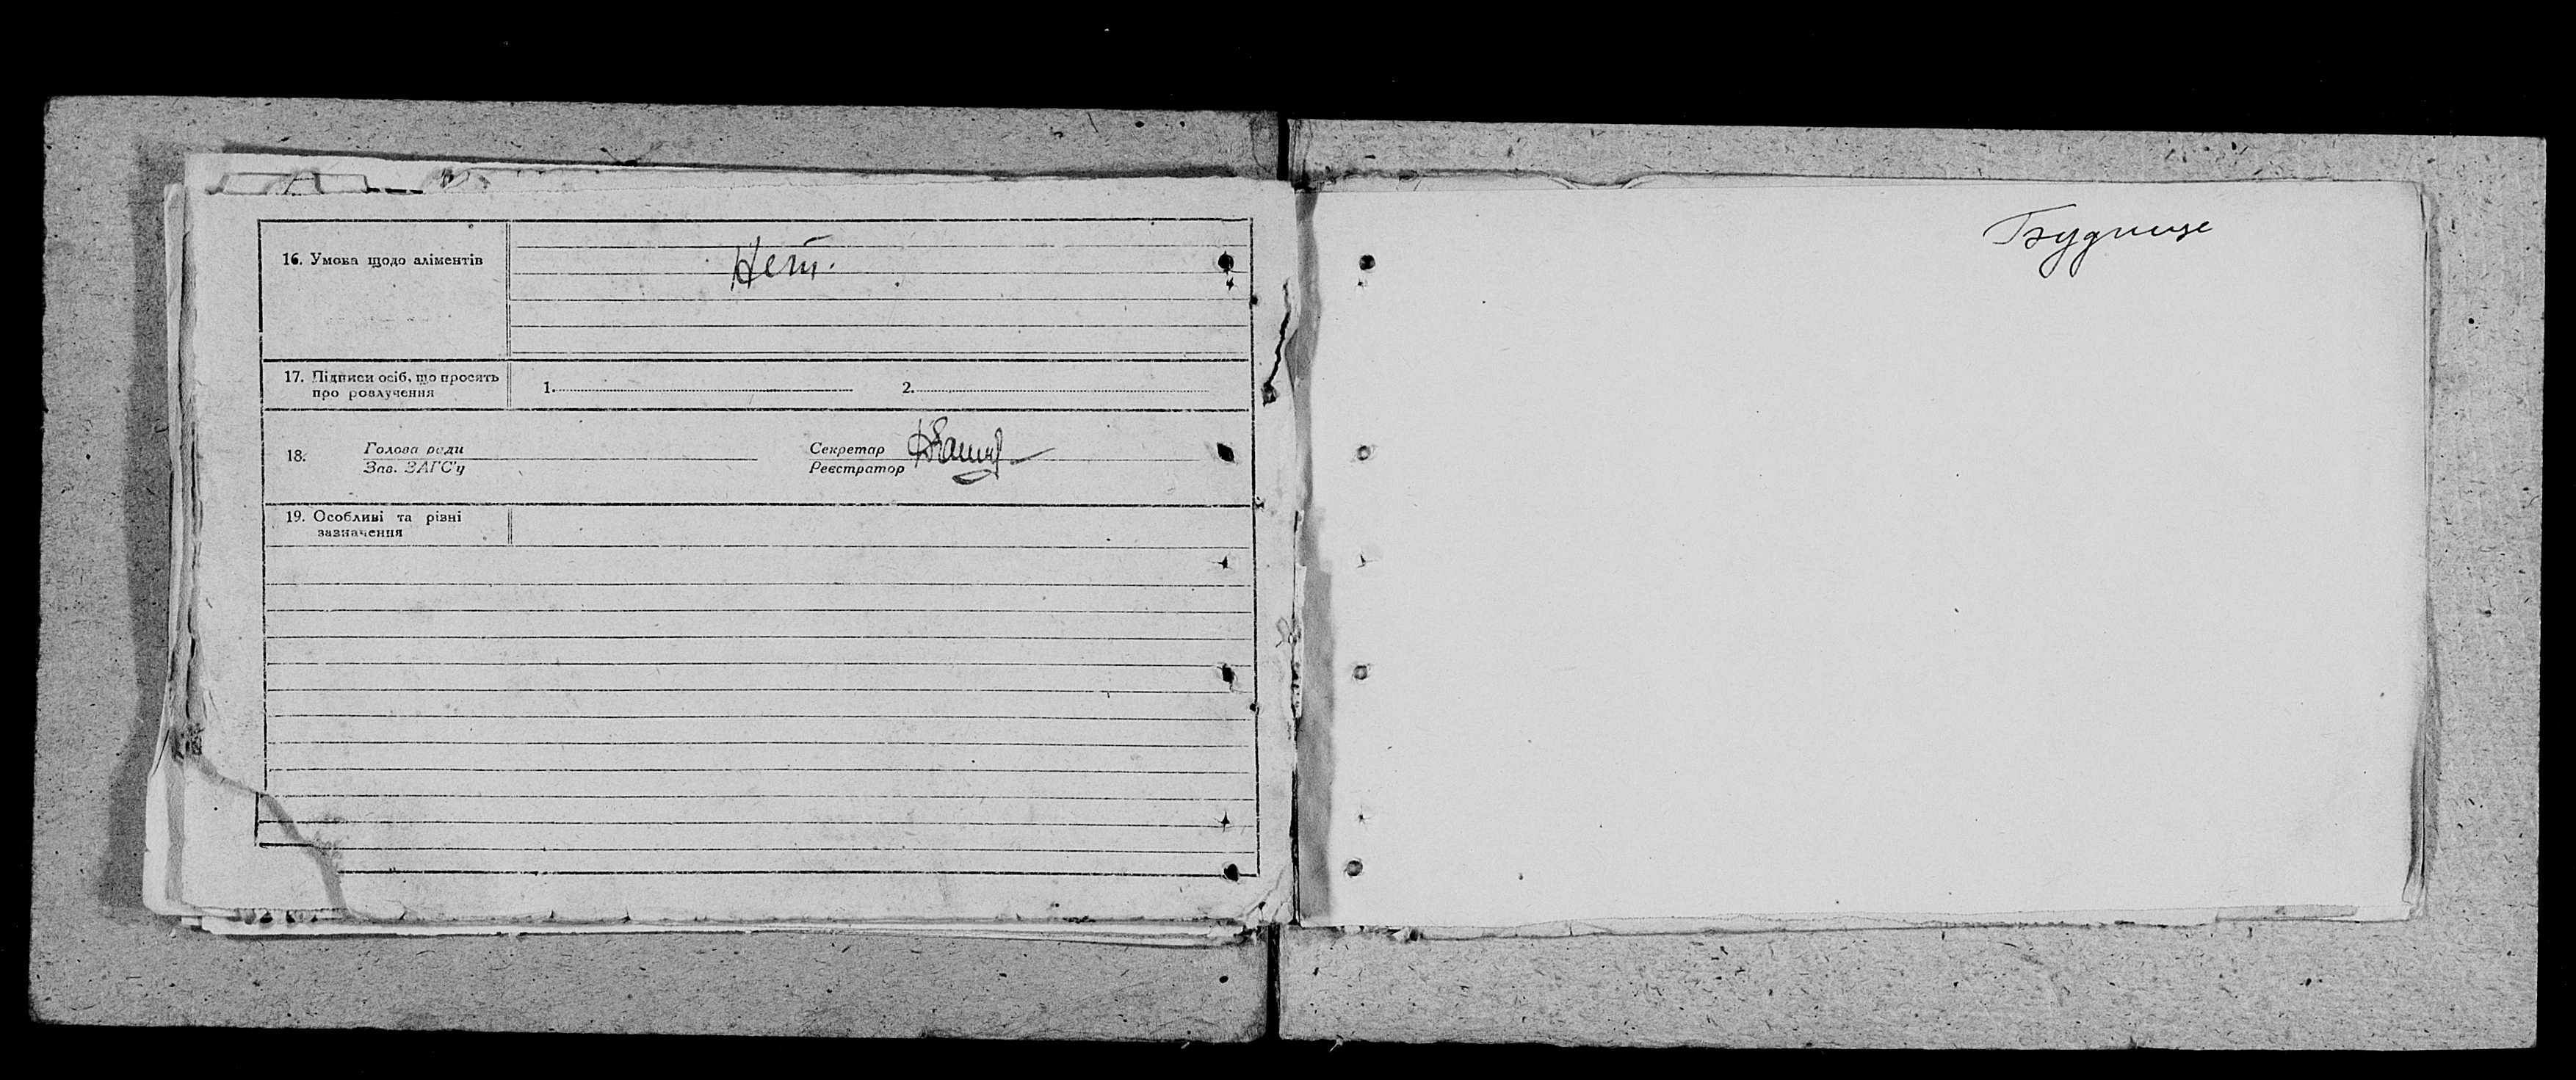 16. Умова щодо аліментів
Нет.
17. Підписи осіб, що просять
про розлучення
1.
2.
18.
Голова ради
Зав. ЗАГС'у
Секретар
Реєстратор
19. Особливі та різні
зазначення
Будище